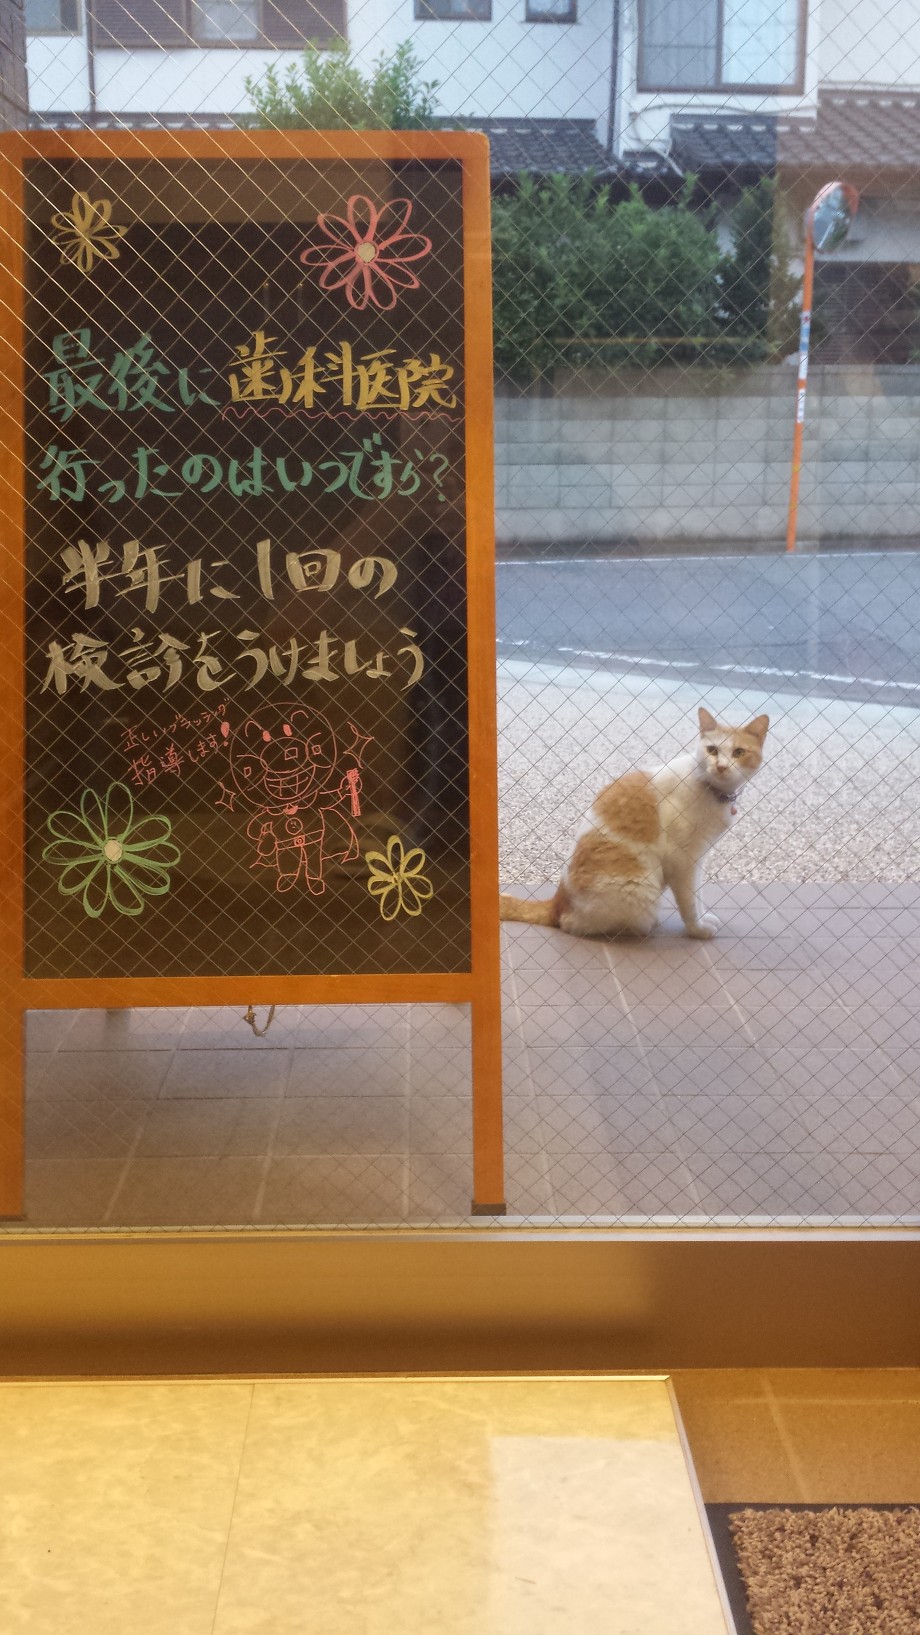 最後に歯科医院
行ったのはいつですか?
半年に1回の
検診をうけましょう
正しいブラッシング
指導します!